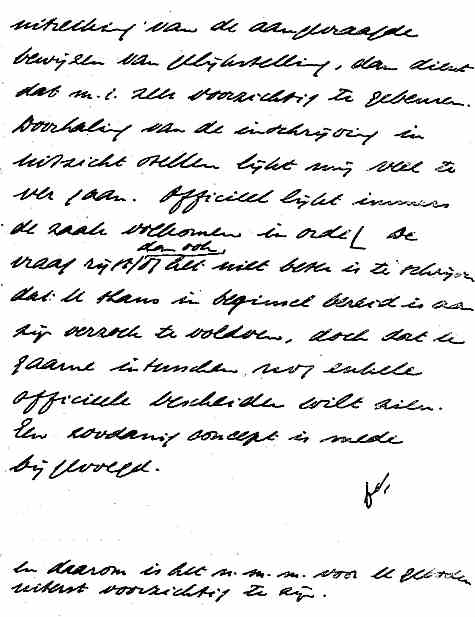 uitreiking van de aangevraagde
bewijzen van gelijkstelling, dan dient
dat m.i. zeer voorzichtig te gebeuren.
Doorhaling van de inschrijving in
uitzicht stellen lijkt mij veel te
ver gaan. Officieel lijkt immers
de zaak volkomen in orde! De
dan ook
vraag rijst / of het niet beter is te schrijven
dat U thans in beginsel bereid is aan
zijn verzoek te voldoen, doch dat U
gaarne intusschen nog enkele
officieele bescheiden wilt zien.
Een zoodanig concept is mede
bijgevoegd.
en daarom is het n.m.m. voor U geboden
uiterst voorzichtig te zijn.